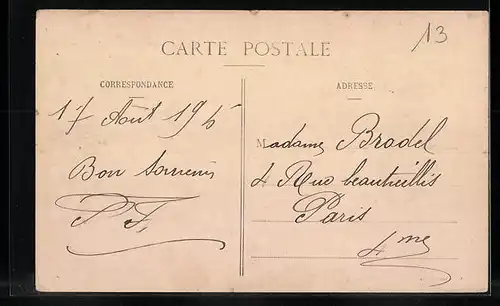 13
CARTE POSTALE
CORRESPONDANCE
17 Août 19
Bon Souvenir
P. F.
ADRESSE
Madame Bradel
4 Rue beautreillis
Paris
4me